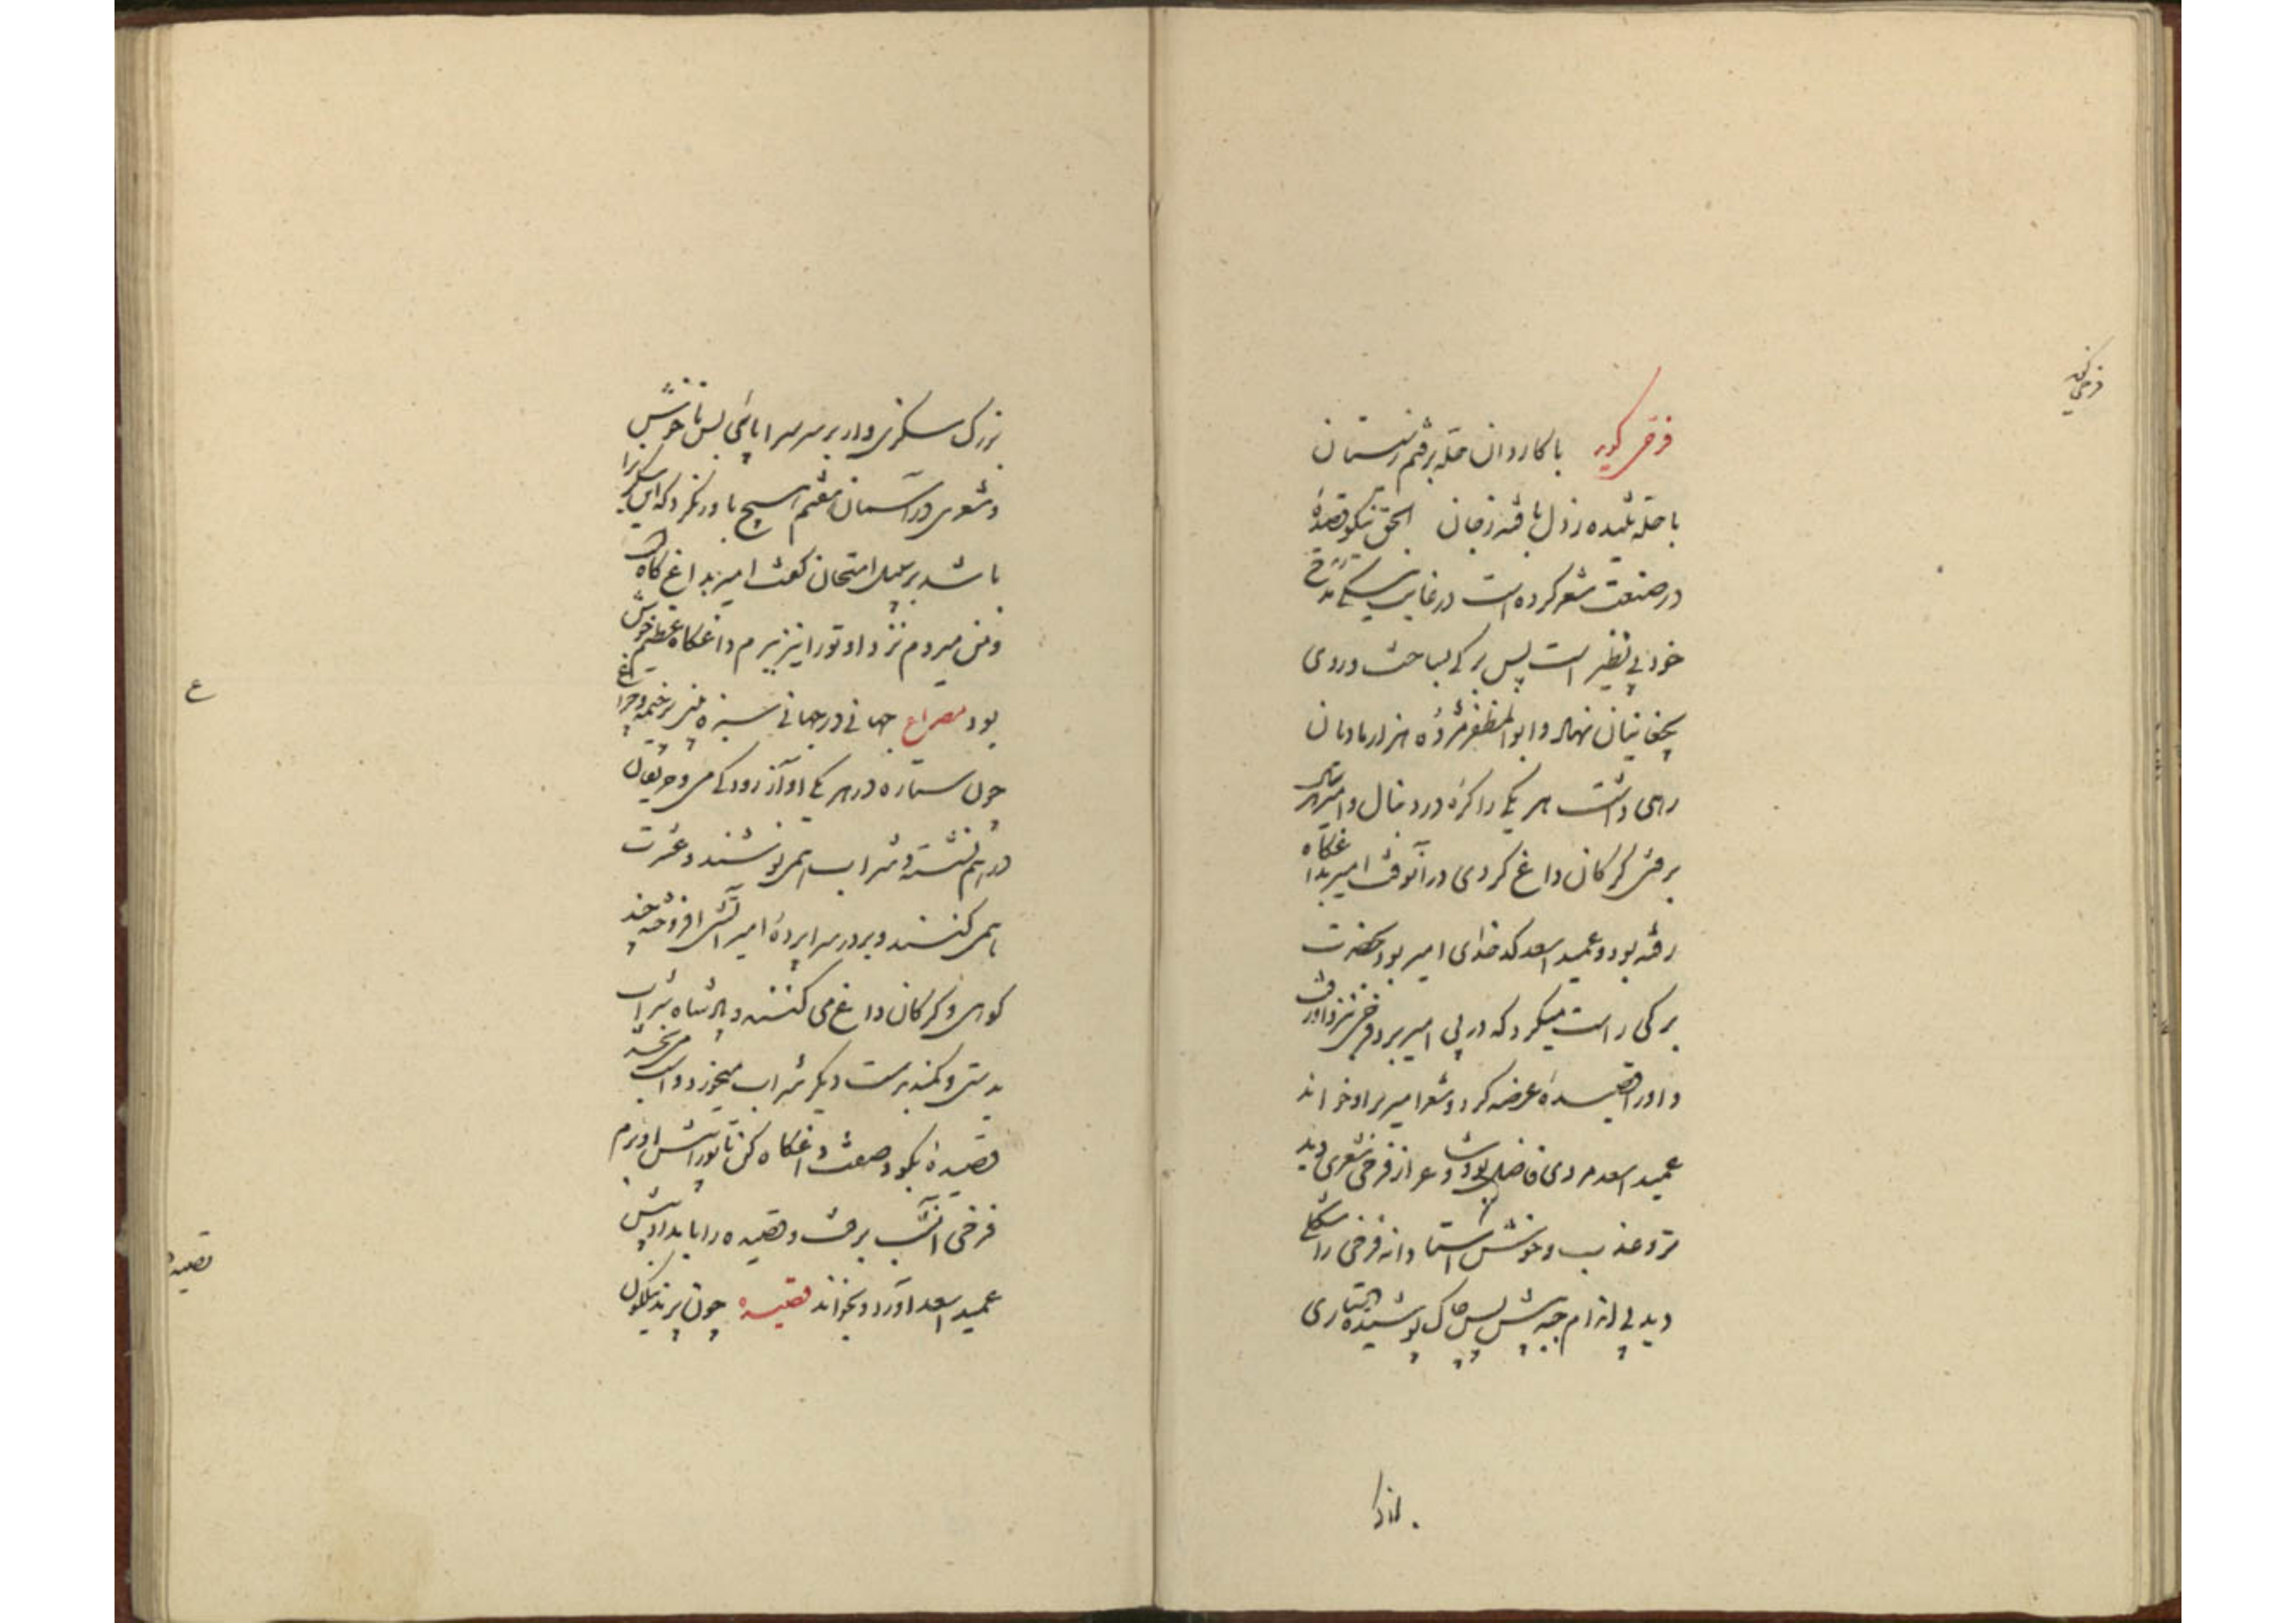 فرخی گوید با کاروان حله برفتم ز سیستان
با حله تنیده ز دل بافته ز جان الحق نیکو قصیدهٔ
در صنعت شعر کرده است در غایت نیکی مدح
خود بی نظیر است پس برکی بساخت و روی
بچغانیان نهاد و ابوالمظفر هژده هزار مادیان
زهی داشت هر یکی را کرهٔ در دنبال و امیر هر سال
برفتی کرکان داغ کردی در آنوقت امیر بداغکاه
رفته بود و عمید اسعد کدخدای امیر بود بحضرت
برکی راست میکرد که در پی امیر برد فرخی نزد او رفت
و او را قصیدهٔ عرضه کرد و شعر امیر بر او خواند
عمید اسعد مردی فاضل بود و شاعر از فرخی شعری دید
تر و عذب و خوش استادانه فرخی را سگزی
دید بی اندام جبهٔ پیش پس چاک پوشیده دستاری
بزرک سکزی وار بر سر سرا پای بس ناخوش
و شعری در آسمان هفتم هیچ باور نکرد که این سکزی را
باشد بر سبیل امتحان کفت امیر بداغ کاه است
و من میروم نزد او تو را نیز ببرم داغکاه عظیم خوش
بود مصراع جهانی در جهانی سبزه بینی پر خیمه و چراغ
چون ستاره در هر یکی آواز رود کی می و حریفان
در هم نشسته و شراب همی نوشند و عشرت
همی کنند و بر در سراپردهٔ امیر آتشی افروخته چند
کوهی و کرکان داغ می کنند و پادشاه شراب
بدستی و کمند بدست دیکر شراب میخورد و اسب می بخشد
قصیدهٔ بکو و صفت داغکاه کن تا تو را پیش او برم
فرخی آنشب برفت و قصیده را بامداد پیش
عمید اسعد آورد و بخواند قصیده چون پرند نیلکون
ع
قصیده